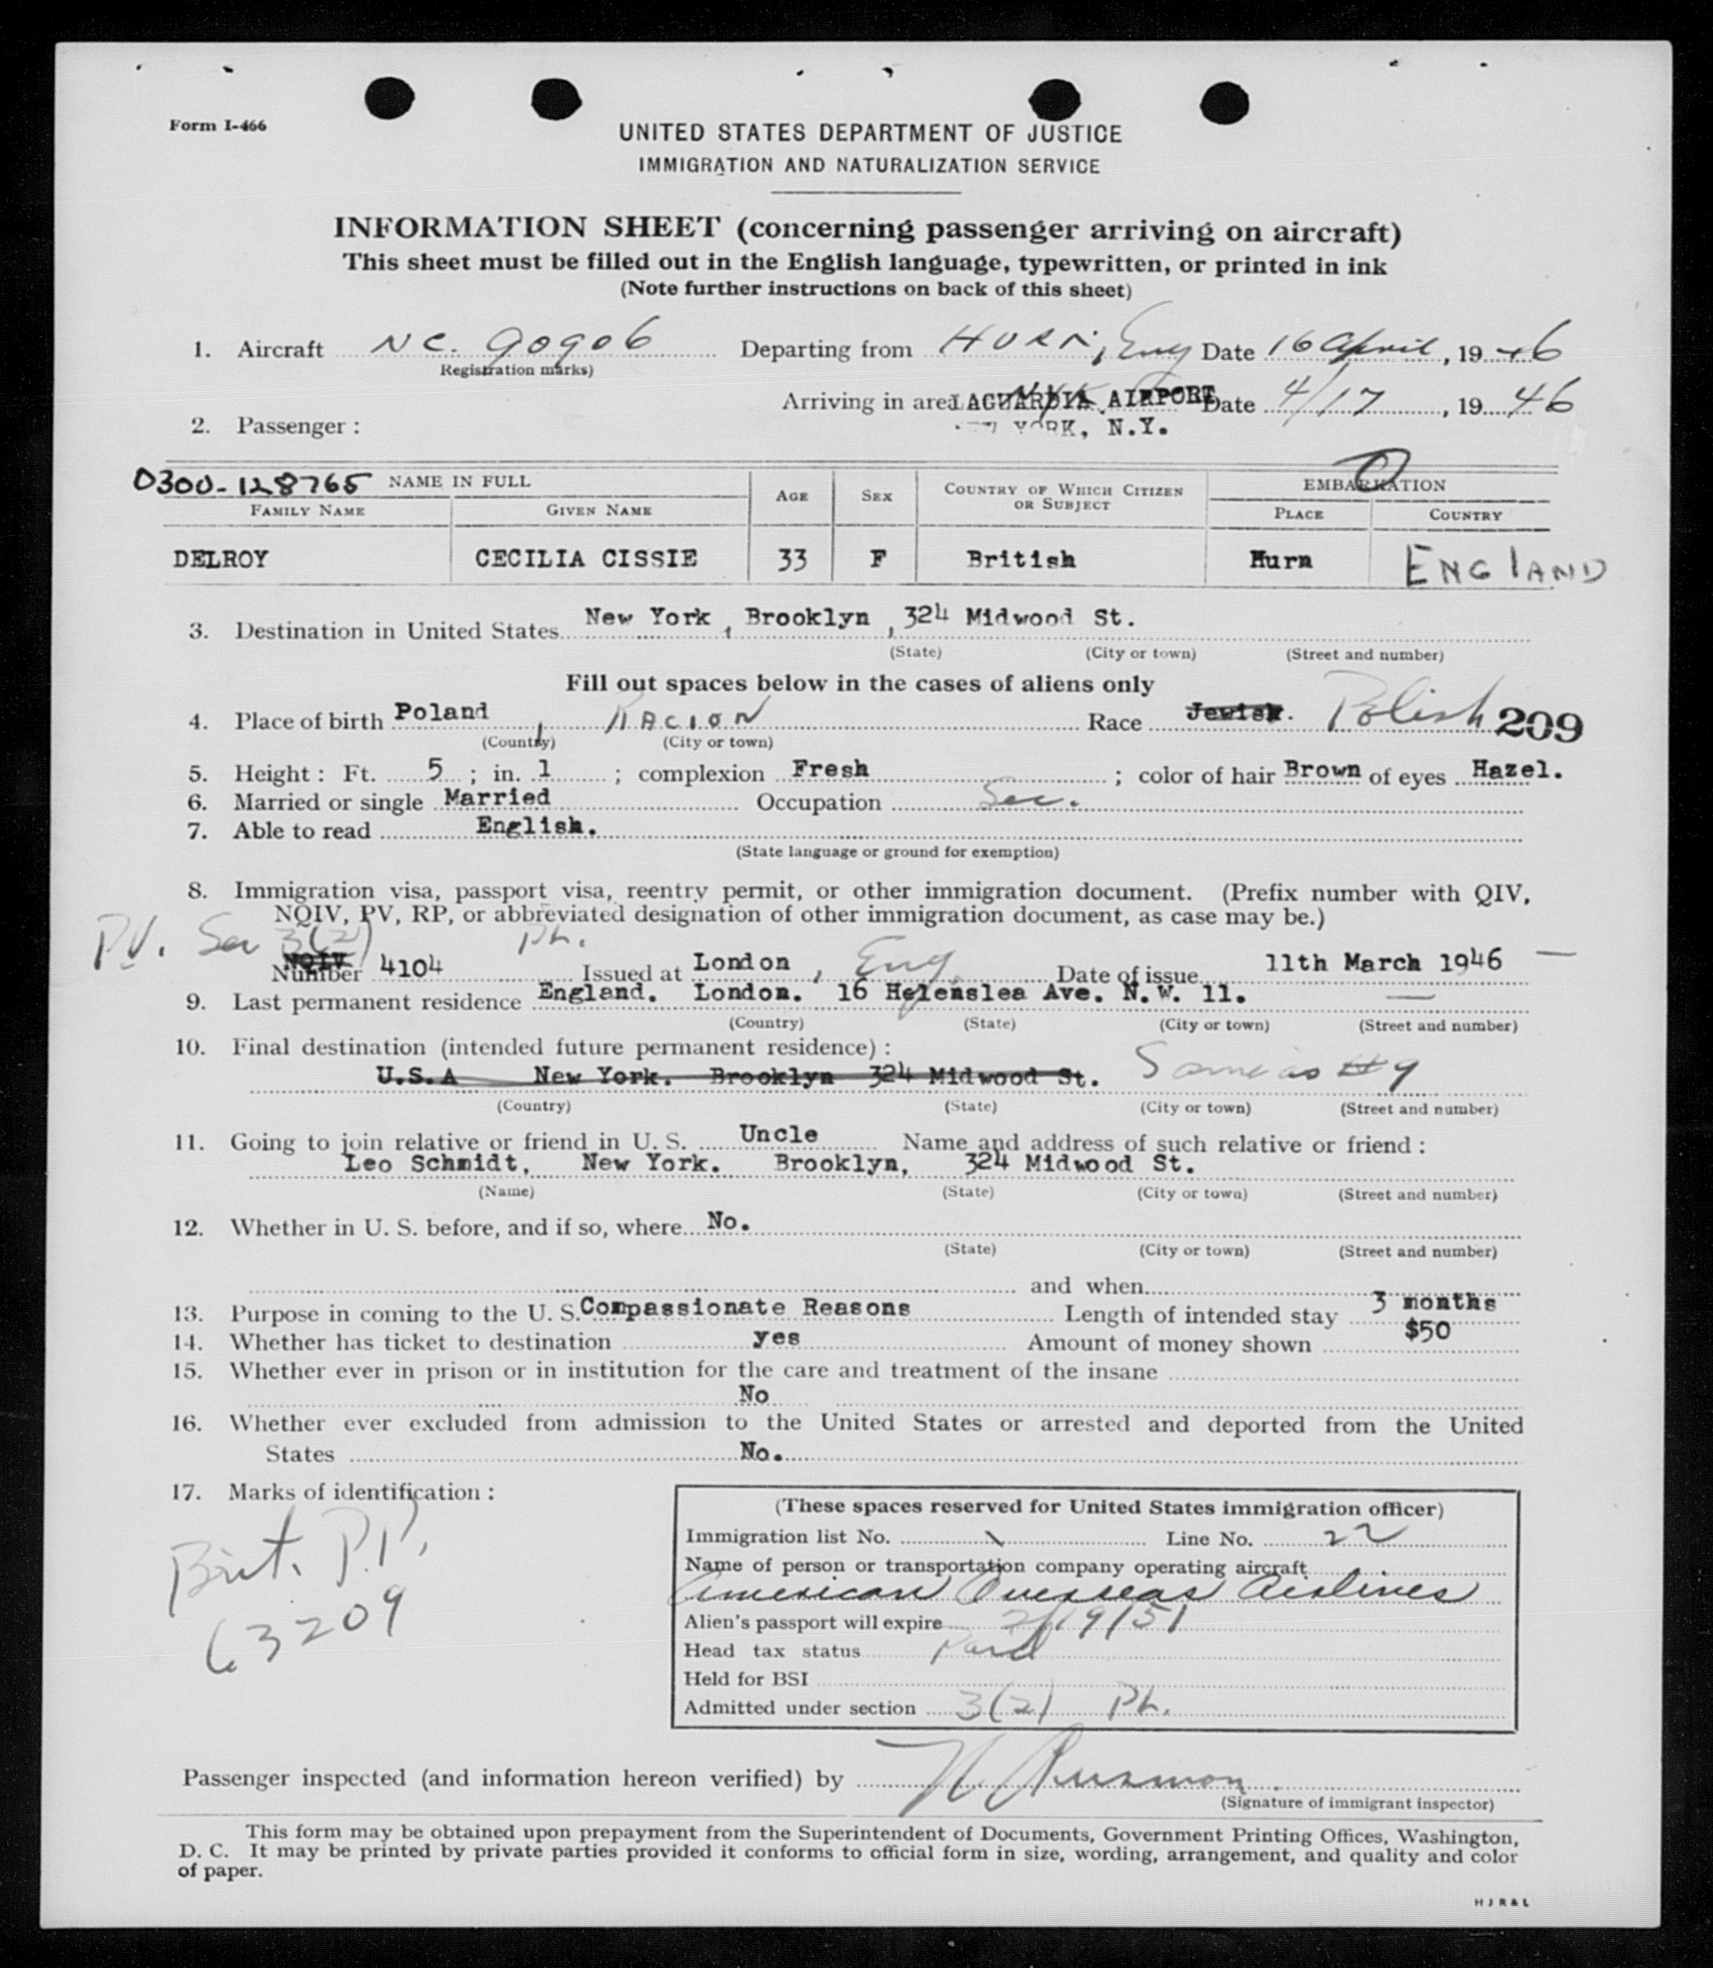 Form I-466
UNITED STATES DEPARTMENT OF JUSTICE
IMMIGRATION AND NATURALIZATION SERVICE
INFORMATION SHEET (concerning passenger arriving on aircraft)
This sheet must be filled out in the English language, typewritten, or printed in ink
(Note further instructions on back of this sheet)
1. Aircraft NC. 90906 Departing from HURN, Eng Date 16 April, 1946
(Registration marks)
Arriving in area LAGUARDIA AIRPORT Date 4/17, 1946
2. Passenger: YORK, N.Y.
0300-128765 NAME IN FULL AGE SEX COUNTRY OF WHICH CITIZEN OR SUBJECT EMBARKATION
FAMILY NAME GIVEN NAME PLACE COUNTRY
DELROY CECILIA CISSIE 33 F British Hurn ENGLAND
3. Destination in United States New York, Brooklyn, 324 Midwood St.
(State) (City or town) (Street and number)
Fill out spaces below in the cases of aliens only
4. Place of birth Poland, RACION Race Jewish. Polish 209
(Country) (City or town)
5. Height: Ft. 5; in. 1; complexion Fresh; color of hair Brown of eyes Hazel.
6. Married or single Married Occupation Sec.
7. Able to read English.
(State language or ground for exemption)
8. Immigration visa, passport visa, reentry permit, or other immigration document. (Prefix number with QIV,
NQIV, PV, RP, or abbreviated designation of other immigration document, as case may be.)
P.V. Sec 3(2) Ph.
NQIV Number 4104 Issued at London, Eng. Date of issue 11th March 1946 —
9. Last permanent residence England. London. 16 Helenslea Ave. N.W. 11. —
(Country) (State) (City or town) (Street and number)
10. Final destination (intended future permanent residence):
U.S.A New York. Brooklyn 324 Midwood St. Same as #9
(Country) (State) (City or town) (Street and number)
11. Going to join relative or friend in U. S. Uncle Name and address of such relative or friend:
Leo Schmidt, New York. Brooklyn, 324 Midwood St.
(Name) (State) (City or town) (Street and number)
12. Whether in U. S. before, and if so, where No.
(State) (City or town) (Street and number)
and when
13. Purpose in coming to the U. S. Compassionate Reasons Length of intended stay 3 months
14. Whether has ticket to destination yes Amount of money shown $50
15. Whether ever in prison or in institution for the care and treatment of the insane
No
16. Whether ever excluded from admission to the United States or arrested and deported from the United
States No.
17. Marks of identification:
Brit. P.P.
63209
(These spaces reserved for United States immigration officer)
Immigration list No. 1 Line No. 22
Name of person or transportation company operating aircraft
American Overseas Airlines
Alien's passport will expire 2/19/51
Head tax status Paid
Held for BSI
Admitted under section 3(2) Ph.
Passenger inspected (and information hereon verified) by
(Signature of immigrant inspector)
This form may be obtained upon prepayment from the Superintendent of Documents, Government Printing Offices, Washington,
D. C. It may be printed by private parties provided it conforms to official form in size, wording, arrangement, and quality and color
of paper.
H J R & L